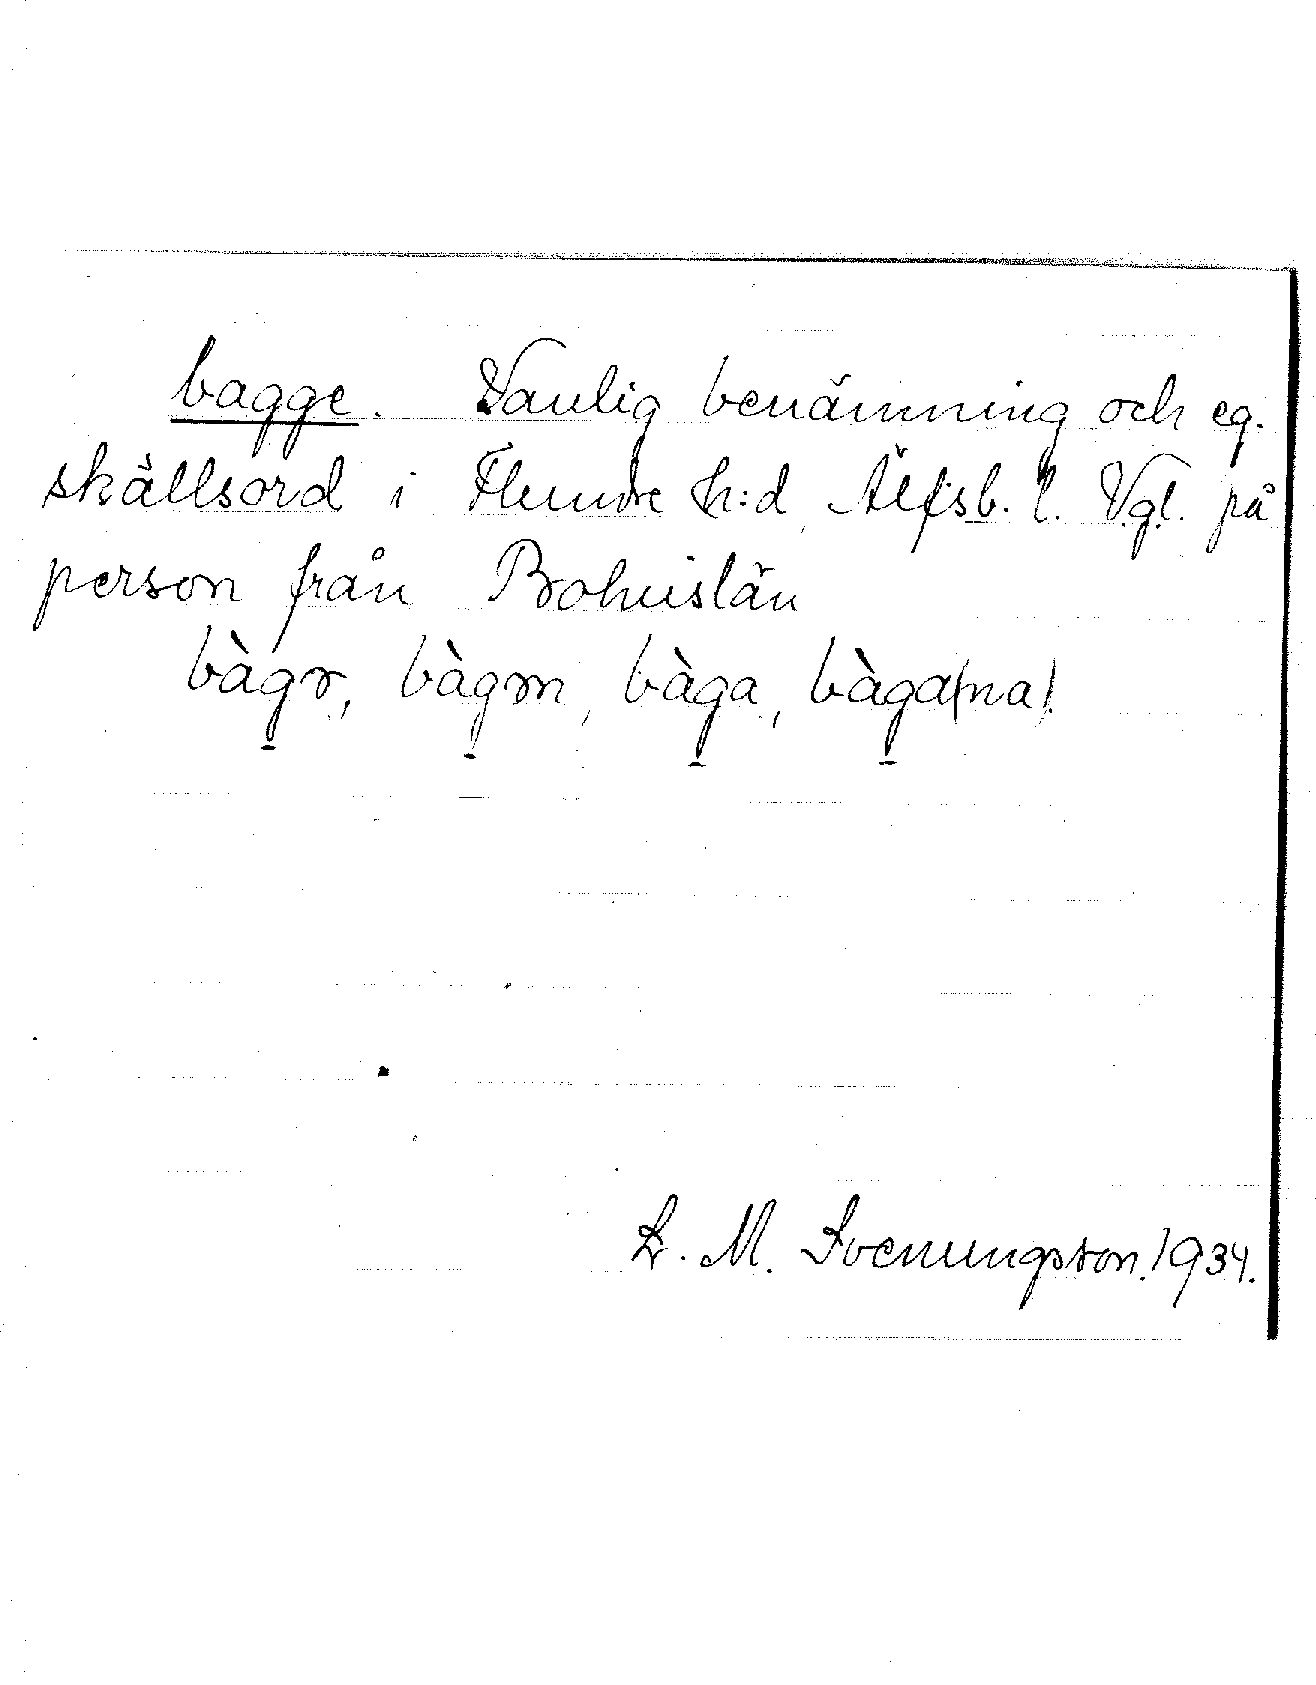 bagge. Vanlig benämning och eg.
skällsord i Flundre h:d Älfsb. l. Vgl. på
person från Bohuslän
bàg̠ɤ, bàg̠ɤn, bàg̠a, bàg̠a(na).
L. M. Svenungsson. 1934.